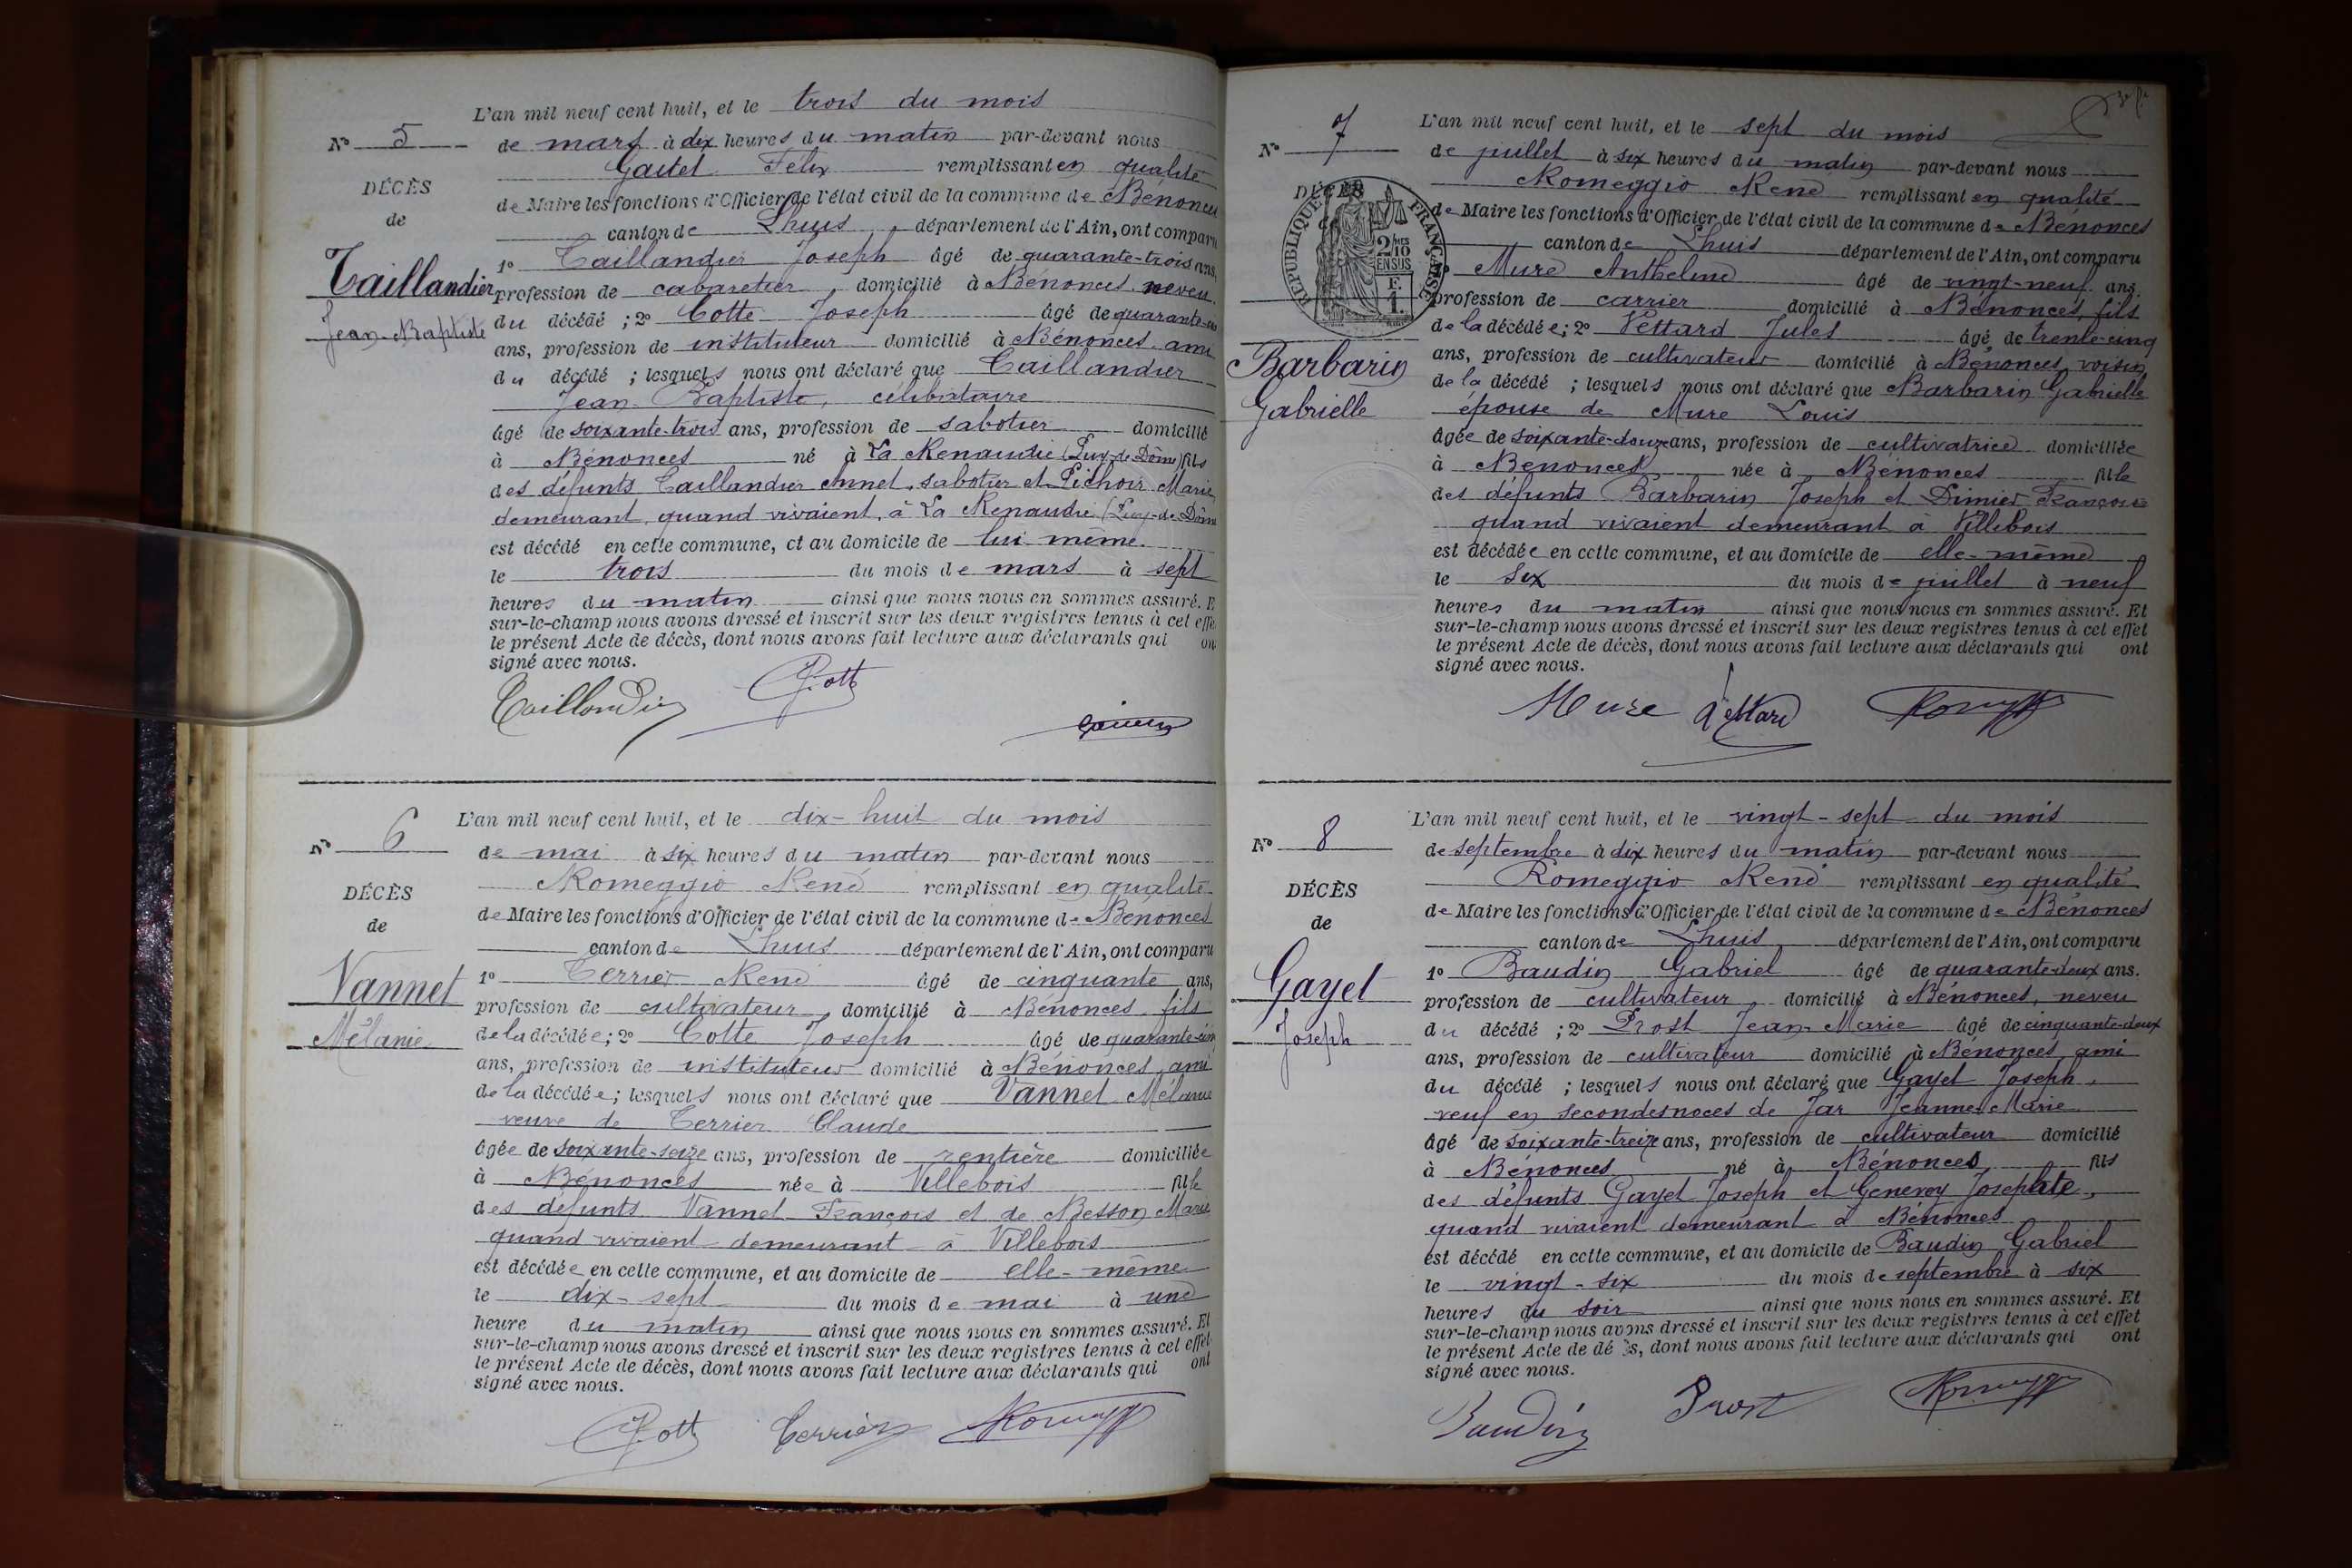 L'an mil neuf cent huit, et le trois du mois
N° 5
de mars à dix heures du matin par-devant nous
Gaitet Félix remplissant en qualité
DÉCÈS
de Maire les fonctions d'Officier de l'état civil de la commune de Bénonces
de
canton de Lhuis département de l'Ain, ont comparu
1° Taillandier Joseph âgé de quarante-trois ans,
Taillandier
profession de cabaretier, domicilié à Bénonces neveu
Jean-Baptiste
du décédé ; 2° Cotte Joseph âgé de quarante-
ans, profession de instituteur domicilié à Bénonces ami
du décédé ; lesquels nous ont déclaré que Taillandier
Jean-Baptiste, célibataire
âgé de soixante-trois ans, profession de sabotier domicilié
à Bénonces né à La Renaudie (Puy-de-Dôme) fils
des défunts Taillandier Annet, sabotier et Pichoir Marie
demeurant, quand vivaient, à La Renaudie (Puy-de-Dôme
est décédé en cette commune, et au domicile de lui même
le trois du mois de mars à sept
heures du matin ainsi que nous nous en sommes assuré. E
sur-le-champ nous avons dressé et inscrit sur les deux registres tenus à cet effe
le présent Acte de décès, dont nous avons fait lecture aux déclarants qui on
signé avec nous.
Taillandier J. Cotte
L'an mil neuf cent huit, et le dix-huit du mois
N° 6
de mai à six heures du matin par-devant nous
Romeggio René remplissant en qualité
DÉCÈS
de Maire les fonctions d'Officier de l'état civil de la commune de Bénonces
de
canton de Lhuis département de l'Ain, ont comparu
Vannet
1° Terrier René âgé de cinquante ans,
profession de cultivateur, domicilié à Bénonces fils
Mélanie
de la décédée ; 2° Cotte Joseph âgé de quarante-cinq
ans, profession de instituteur domicilié à Bénonces, ami
de la décédée ; lesquels nous ont déclaré que Vannet Mélanie
veuve de Terrier Claude
âgée de soixante-seize ans, profession de rentière domiciliée
à Bénonces née à Villebois fille
des défunts Vannet François et de Besson Marie
quand vivaient demeurant à Villebois
est décédée en cette commune, et au domicile de elle-même
le dix-sept du mois de mai à une
heure du matin ainsi que nous nous en sommes assuré. Et
sur-le-champ nous avons dressé et inscrit sur les deux registres tenus à cet effet
le présent Acte de décès, dont nous avons fait lecture aux déclarants qui ont
signé avec nous.
J. Cotte Terrier Romeggio
L'an mil neuf cent huit, et le sept du mois
N° 7
de juillet à six heures du matin par-devant nous
Romeggio René remplissant en qualité
DÉCÈS
de Maire les fonctions d'Officier de l'état civil de la commune de Bénonces
RÉPUBLIQUE FRANÇAISE
2/10 EN SUS
F. 1.
canton de Lhuis département de l'Ain, ont comparu
Mure Anthelme âgé de vingt-neuf ans,
profession de carrier domicilié à Bénonces, fils
de la décédée ; 2° Vettard Jules âgé de trente-cinq
Barbarin
ans, profession de cultivateur domicilié à Bénonces, voisin
Gabrielle
de la décédé ; lesquels nous ont déclaré que Barbarin Gabrielle
épouse de Mure Louis
âgée de soixante-douze ans, profession de cultivatrice domiciliée
à Bénonces née à Bénonces fille
des défunts Barbarin Joseph et Dimier Françoise
quand vivaient demeurant à Villebois
est décédée en cette commune, et au domicile de elle-même
le six du mois de juillet à neuf
heures du matin ainsi que nous nous en sommes assuré. Et
sur-le-champ nous avons dressé et inscrit sur les deux registres tenus à cet effet
le présent Acte de décès, dont nous avons fait lecture aux déclarants qui ont
signé avec nous.
Mure Vettard Romeggio
L'an mil neuf cent huit, et le vingt-sept du mois
N° 8
de septembre à dix heures du matin par-devant nous
Romeggio René remplissant en qualité
DÉCÈS
de Maire les fonctions d'Officier de l'état civil de la commune de Bénonces
de
canton de Lhuis département de l'Ain, ont comparu
Gayet
1° Baudin Gabriel âgé de quarante-deux ans.
profession de cultivateur, domicilié à Bénonces, neveu
Joseph
du décédé ; 2° Prost Jean-Marie âgé de cinquante-deux
ans, profession de cultivateur domicilié à Bénonces, ami
du décédé ; lesquels nous ont déclaré que Gayet Joseph,
veuf en secondes noces de Jar Jeanne Marie
âgé de soixante-treize ans, profession de cultivateur domicilié
à Bénonces né à Bénonces fils
des défunts Gayet Joseph et Genevey Josephte,
quand vivaient demeurant à Bénonces
est décédé en cette commune, et au domicile de Baudin Gabriel
le vingt-six du mois de septembre à six
heures du soir ainsi que nous nous en sommes assuré. Et
sur-le-champ nous avons dressé et inscrit sur les deux registres tenus à cet effet
le présent Acte de décès, dont nous avons fait lecture aux déclarants qui ont
signé avec nous.
Baudin Prost Romeggio